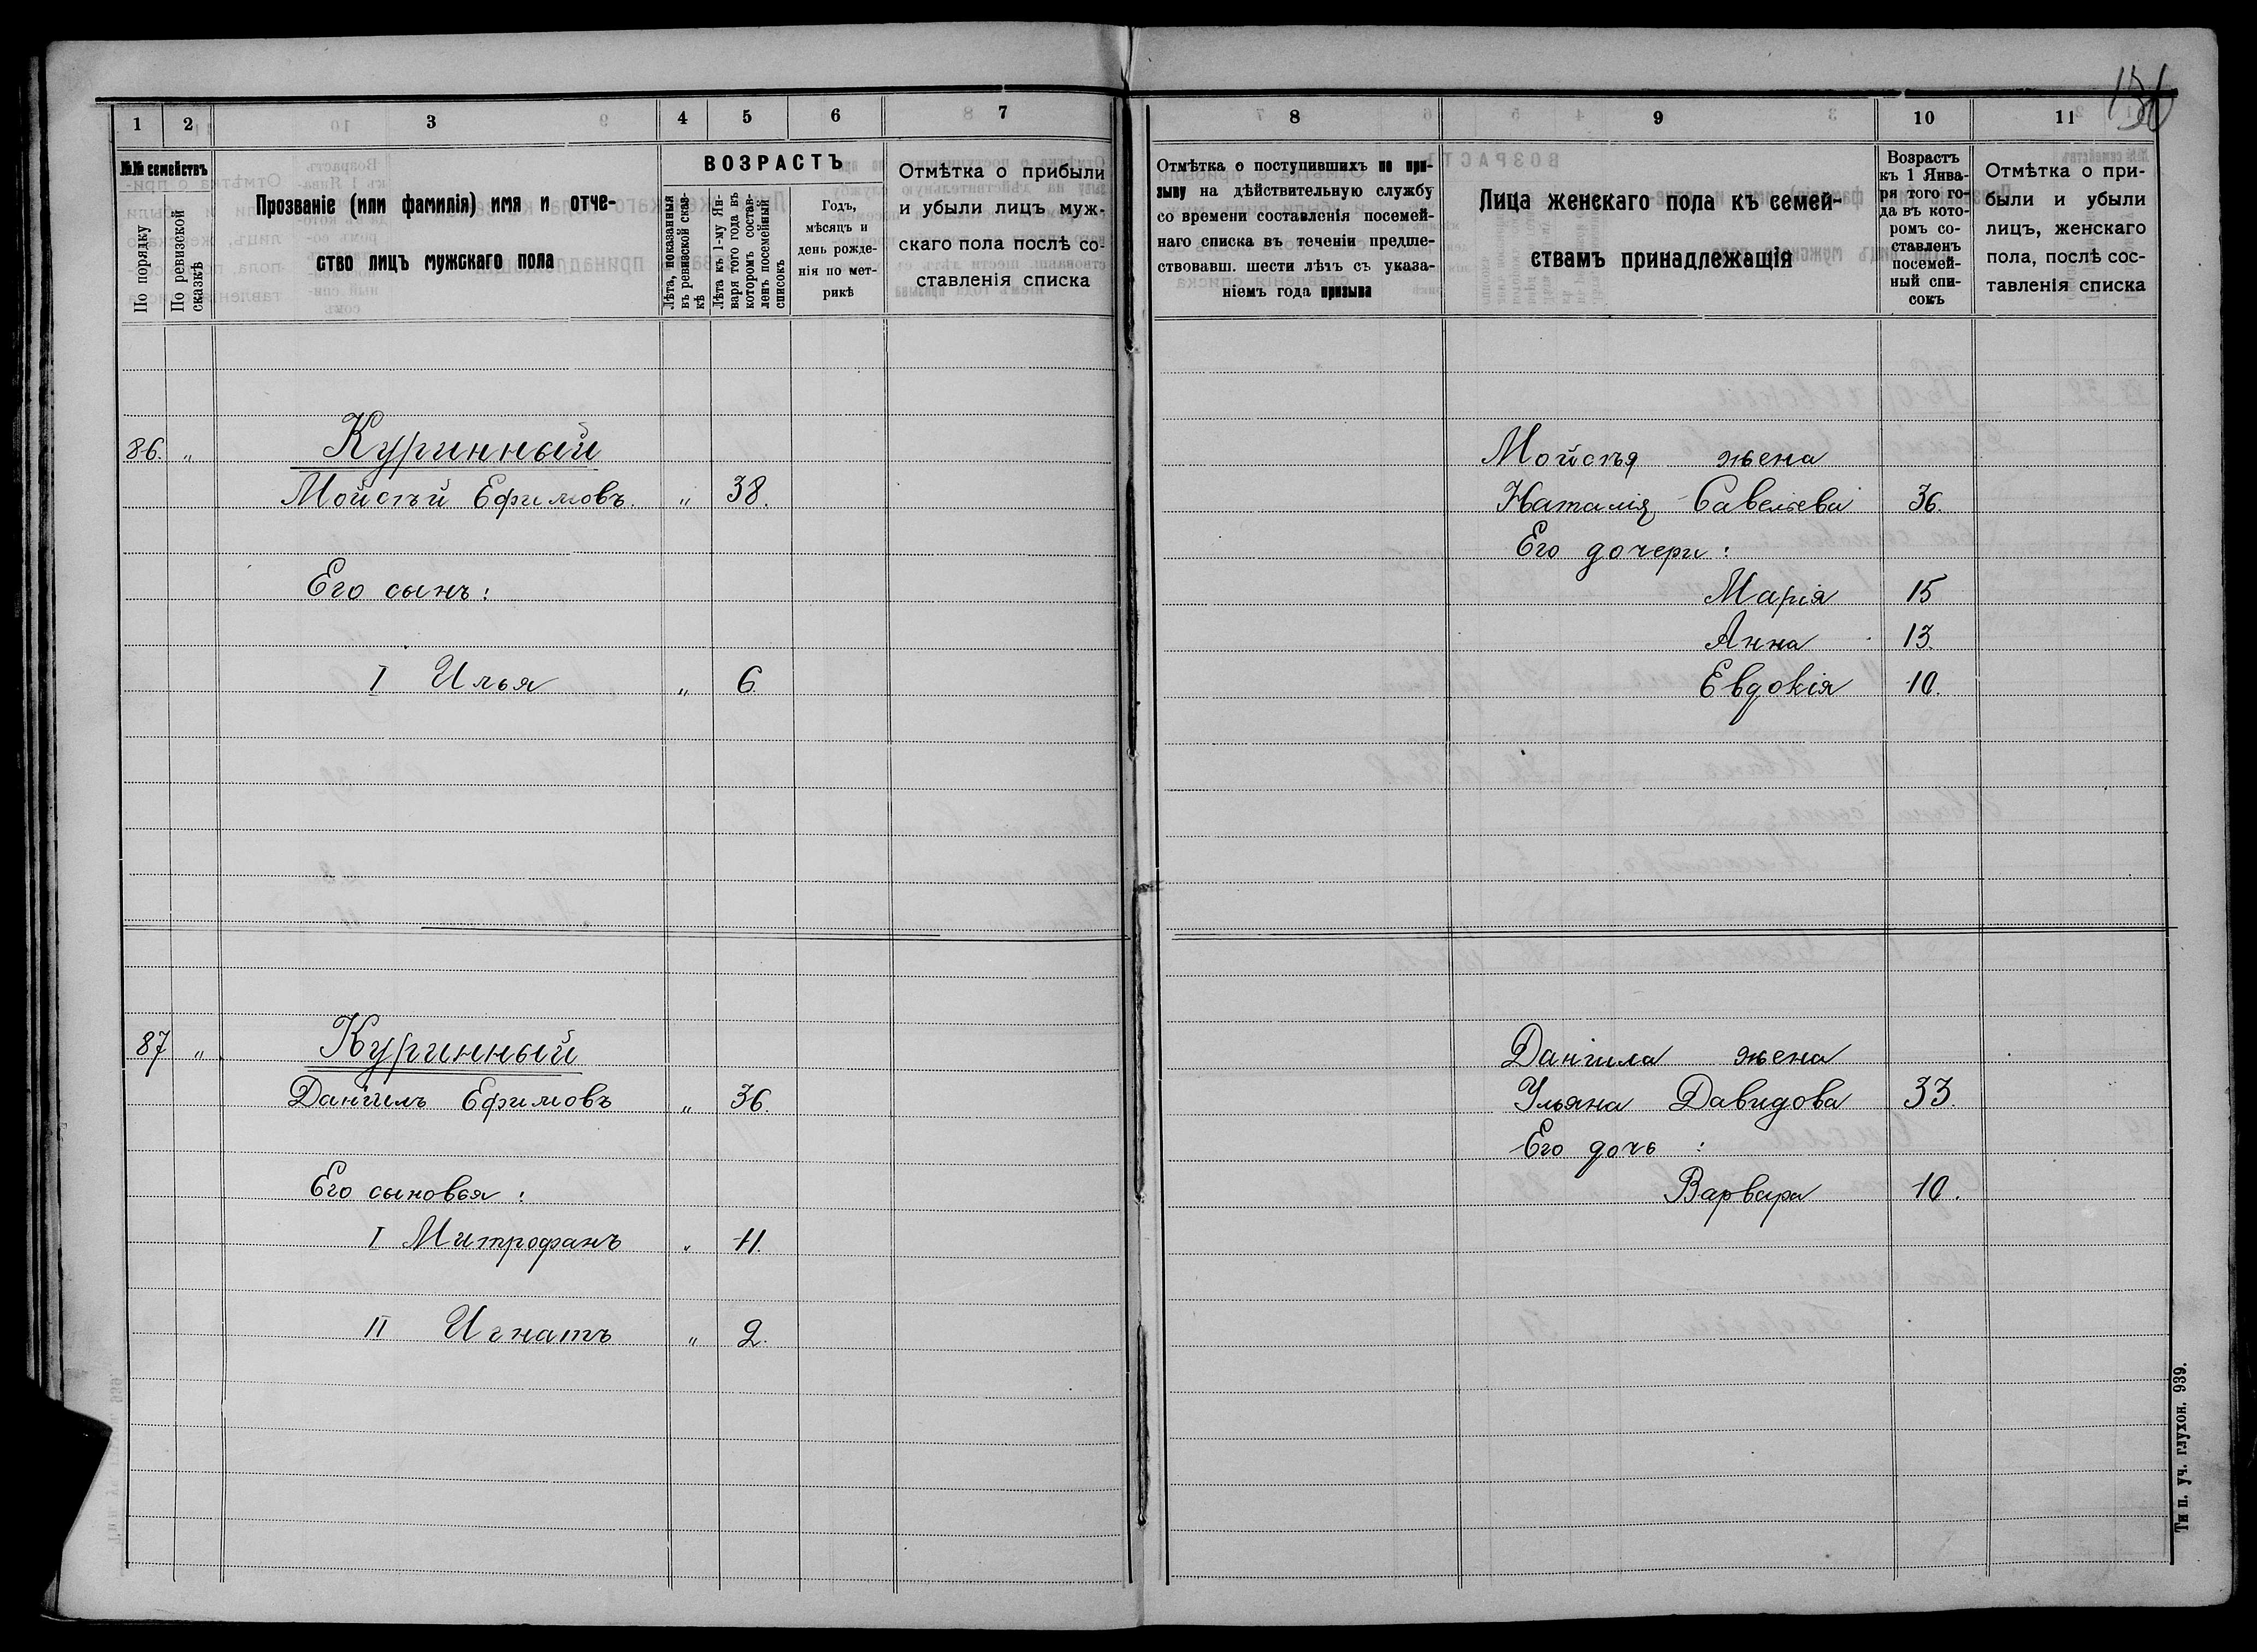 130
1 2 3 4 5 6 7
№№ семействъ
По порядку
По ревизской сказкѣ
Прозваніе (или фамилія) имя и отче-
ство лицъ мужскаго пола
ВОЗРАСТЪ
Лѣта, показанныя
въ ревизской сказ-
кѣ
Лѣта къ 1-му Ян-
варя того года въ
которомъ состав-
ленъ посемейный
списокъ
Годъ,
мѣсяцъ и
день рожде-
нія по мет-
рикѣ
Отмѣтка о прибыли
и убыли лицъ муж-
скаго пола послѣ со-
ставленія списка
86. „ Куринный
Мойсѣй Ефимовъ. „ 38.
Его сынъ:
I Илья „ 6.
87 „ Куринный
Даніилъ Ефимовъ „ 36.
Его сыновья:
I Митрофанъ „ 11.
II Игнатъ „ 2.
8 9 10 11
Отмѣтка о поступившихъ по при-
зыву на дѣйствительную службу
со времени составленія посемей-
наго списка въ теченіи предше-
ствовавш. шести лѣтъ съ указа-
ніемъ года призыва
Лица женскаго пола къ семей-
ствамъ принадлежащія
Возрастъ
къ 1 Янва-
ря того го-
да въ кото-
ромъ со-
ставленъ
посемей-
ный спи-
сокъ
Отмѣтка о при-
были и убыли
лицъ, женскаго
пола, послѣ сос-
тавленія списка
Мойсѣя жена
Наталія Савельева 36.
Его дочери:
Марія 15
Анна 13.
Евдокія 10.
Даніила жена
Ульяна Давидова 33.
Его дочь:
Варвара 10.
Тип. уч. глухон. 939.